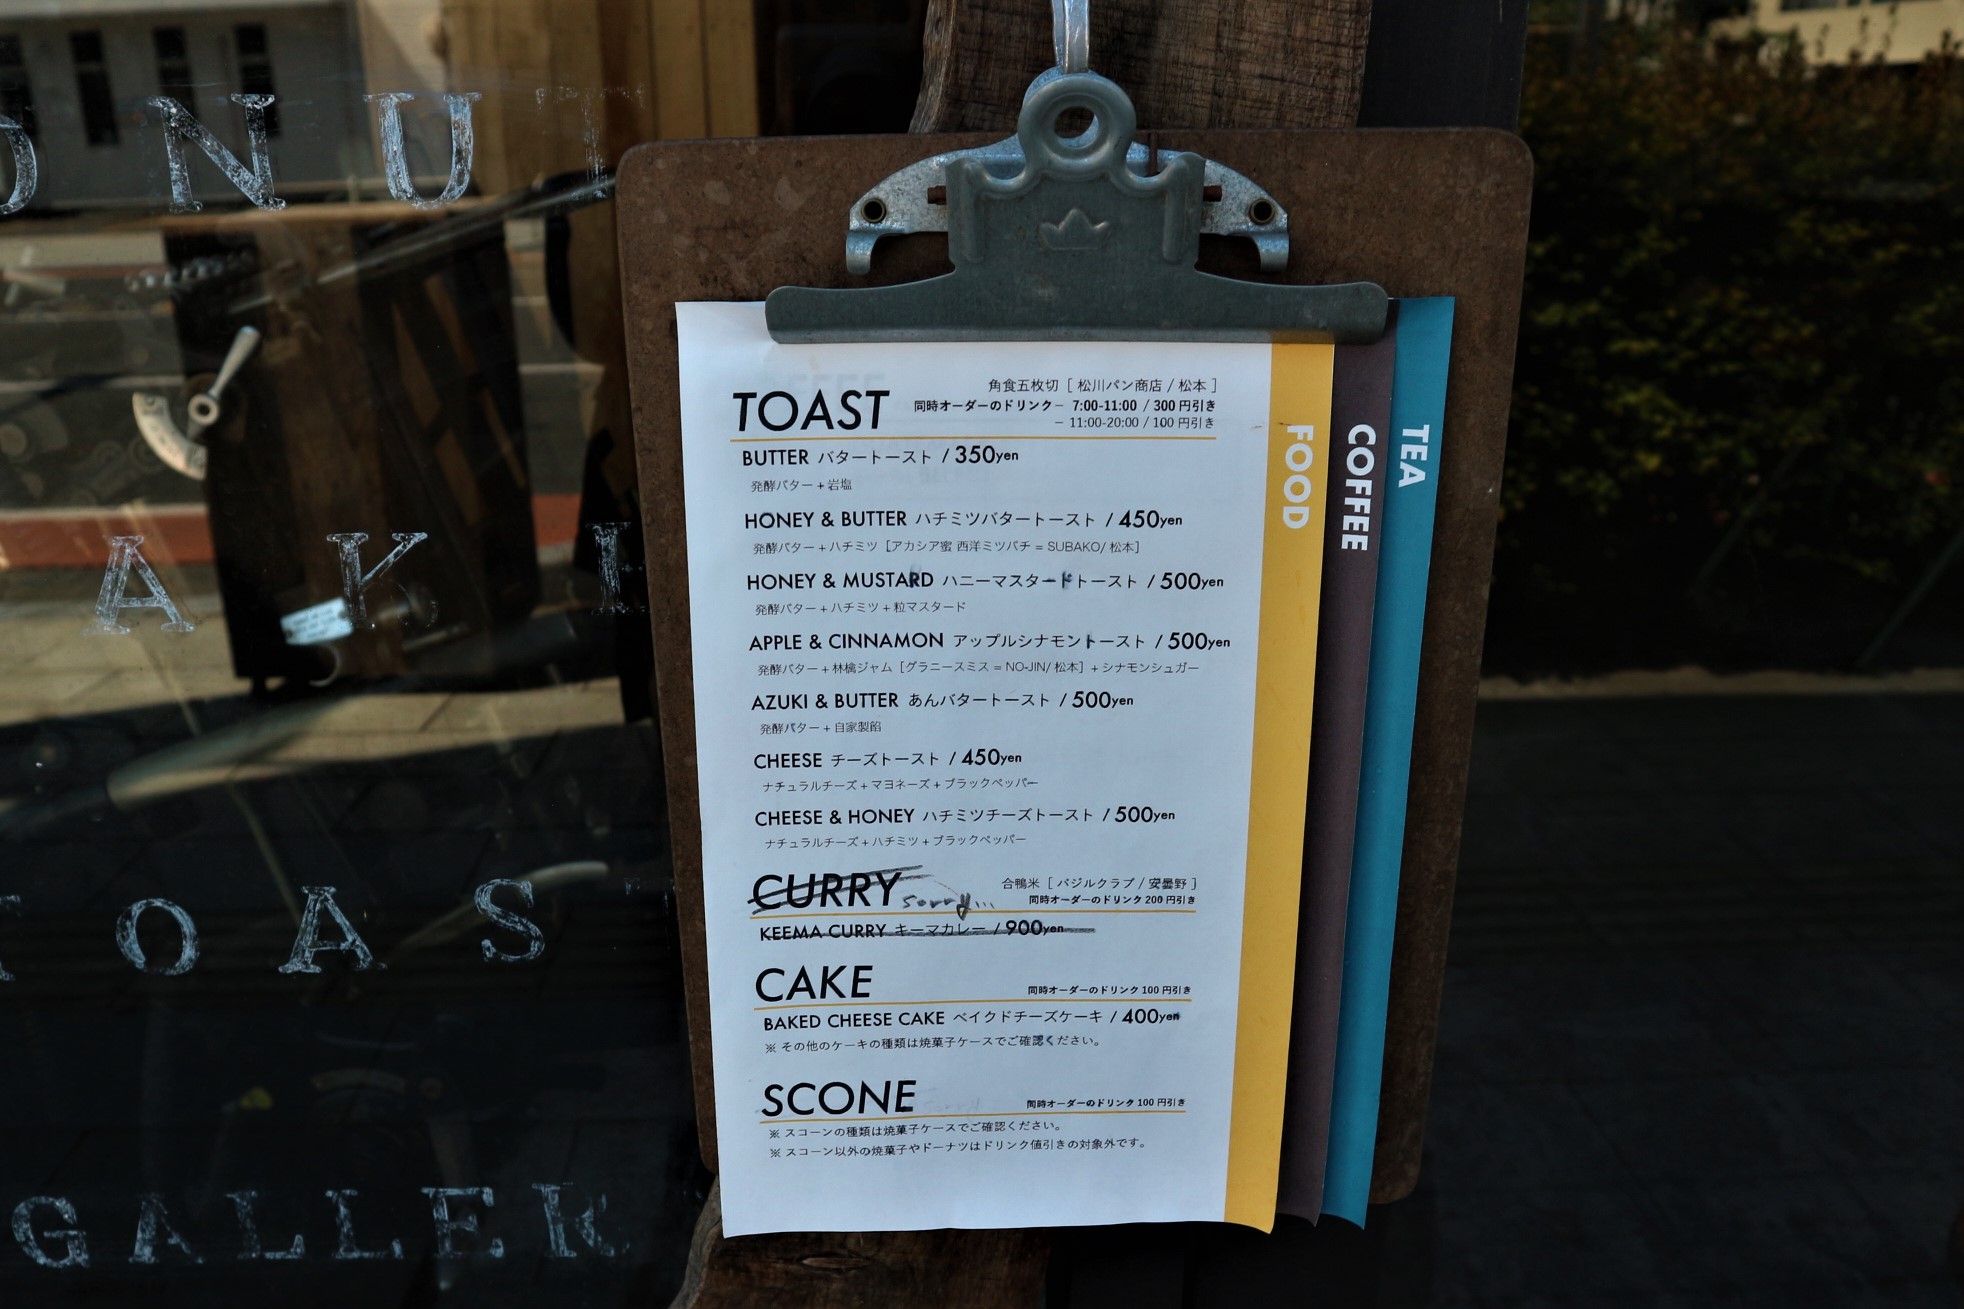 ONUT
AKE
TOAST
GALLER
TOAST
角食五枚切 [ 松川パン商店 / 松本 ]
同時オーダーのドリンク− 7:00-11:00 / 300 円引き
− 11:00-20:00 / 100 円引き
BUTTER バタートースト / 350yen
発酵バター + 岩塩
HONEY & BUTTER ハチミツバタートースト / 450yen
発酵バター + ハチミツ [アカシア蜜 西洋ミツバチ = SUBAKO/ 松本]
HONEY & MUSTARD ハニーマスタードトースト / 500yen
発酵バター + ハチミツ + 粒マスタード
APPLE & CINNAMON アップルシナモントースト / 500yen
発酵バター + 林檎ジャム [グラニースミス = NO-JIN/ 松本] + シナモンシュガー
AZUKI & BUTTER あんバタートースト / 500yen
発酵バター + 自家製餡
CHEESE チーズトースト / 450yen
ナチュラルチーズ + マヨネーズ + ブラックペッパー
CHEESE & HONEY ハチミツチーズトースト / 500yen
ナチュラルチーズ + ハチミツ + ブラックペッパー
CURRY sorry...
合鴨米 [ バジルクラブ / 安曇野 ]
同時オーダーのドリンク 200 円引き
KEEMA CURRY キーマカレー / 900yen
CAKE 同時オーダーのドリンク 100 円引き
BAKED CHEESE CAKE ベイクドチーズケーキ / 400yen
※ その他のケーキの種類は焼菓子ケースでご確認ください。
SCONE 同時オーダーのドリンク 100 円引き
※ スコーンの種類は焼菓子ケースでご確認ください。
※ スコーン以外の焼菓子やドーナツはドリンク値引きの対象外です。
FOOD
COFFEE
TEA